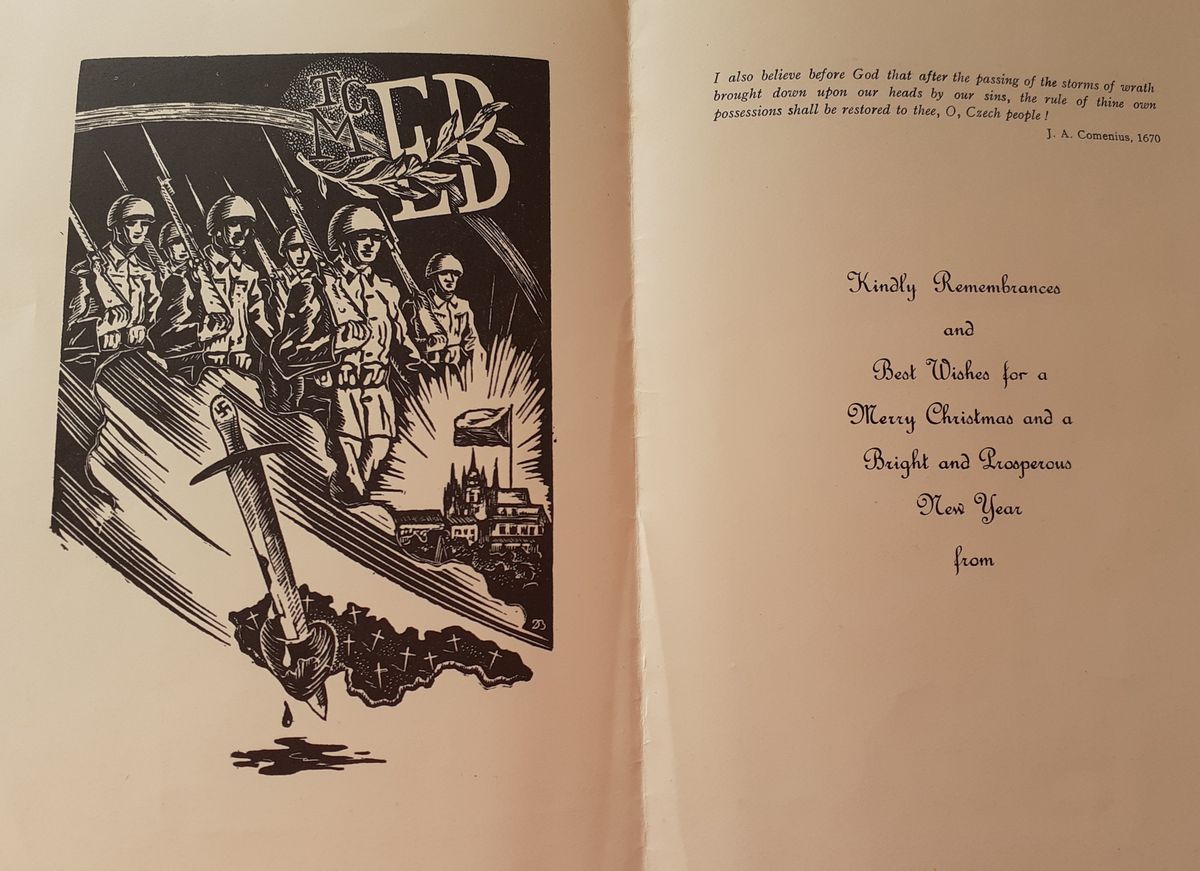 TGM
EB
DB
I also believe before God that after the passing of the storms of wrath
brought down upon our heads by our sins, the rule of thine own
possessions shall be restored to thee, O, Czech people !
J. A. Comenius, 1670
Kindly Remembrances
and
Best Wishes for a
Merry Christmas and a
Bright and Prosperous
New Year
from